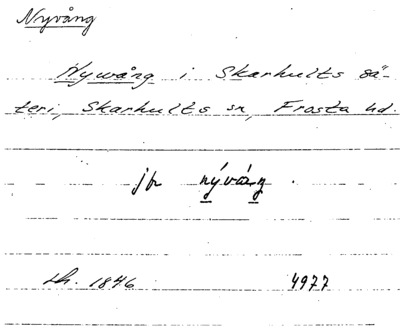 Nyvång
Nywång i Skarhults sä-
teri, Skarhults sn, Frosta hd.
jfr nývá̱ng.
Lh. 1846 4977